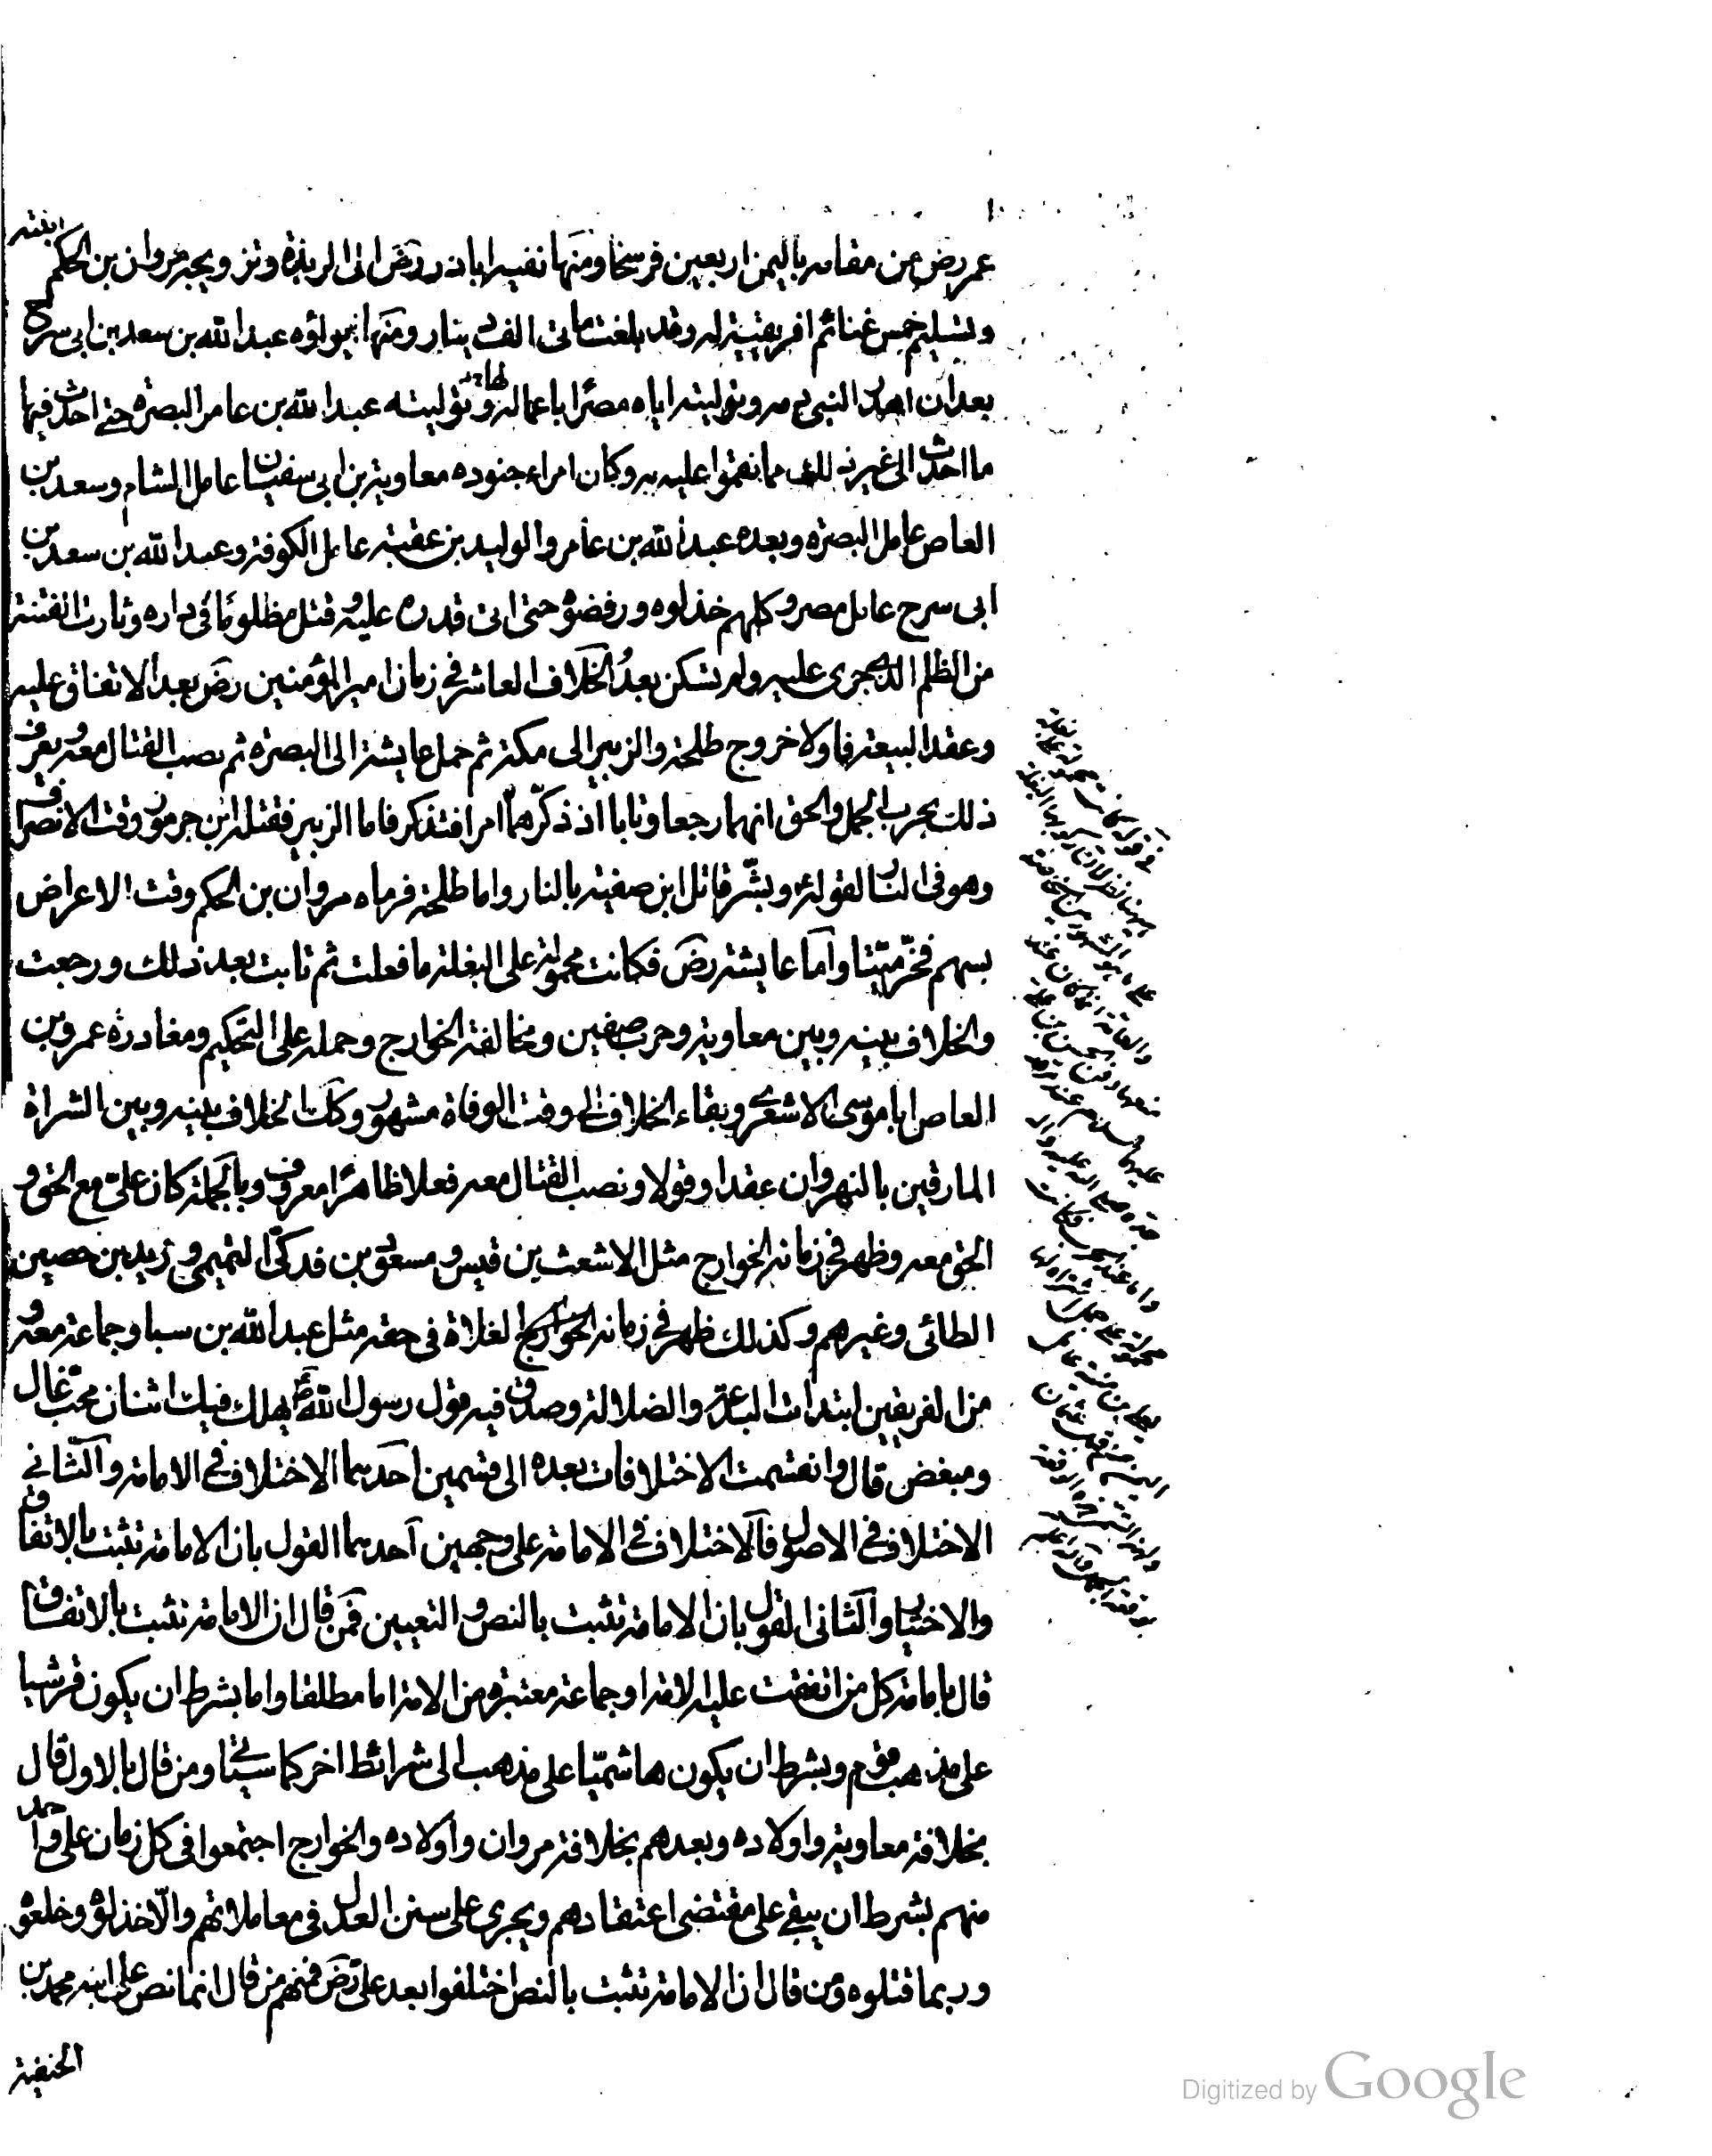 عمر رض من مقامه باليمن اربعين فرسخا ومنها نفيه اباذر رض الى الربذة وتزويجه مروان بن الحكم ابنته
وتسليم خمس غنائم افريقية له وقد بلغت مائتى الف دينار ومنها ايواؤه عبد الله بن سعد بن ابى سرح
بعد ان اهدر النبى دمه وتوليته اياه مصرا باعمالها وتوليته عبد الله بن عامر البصرة حتى احدث فيها
ما احدث الى غير ذلك مما نقموا عليه به وكان امراء جنوده معاوية بن ابى سفيان عامل الشام وسعد بن
العاص عامل البصرة وبعده عبد الله بن عامر والوليد بن عقبة عامل الكوفة وعبد الله بن سعد بن
ابى سرح عامل مصر وكلهم خذلوه ورفضوه حتى اتى قدره عليه وقتل مظلوما فى داره وثارت الفتنة
من الظلم الذى جرى عليه ولم تسكن بعد الخلاف العاشر فى زمان امير المؤمنين رض بعد الاتفاق عليه
وعقد البيعة فاولا خروج طلحة والزبير الى مكة ثم حمل عايشة الى البصرة ثم نصب القتال معه ويعرف
ذلك بحرب الجمل والحق انهما رجعا وتابا اذ ذكرهما امرا فتذكر فاما الزبير فقتله ابن جرموز وقت الانصراف
وهو فى النار لقوله ع وبشر قاتل ابن صفية بالنار واما طلحة فرماه مروان بن الحكم وقت الاعراض
بسهم فخر ميتا واما عايشة رض فكانت محمولة على البغلة ما فعلت ثم تابت بعد ذلك ورجعت
والخلاف بينه وبين معاوية وحرب صفين ومخالفة الخوارج وحمله على التحكيم ومغادرة عمرو بن
العاص اباموسى الاشعرى وبقاء الخلاف الى وقت الوفاة مشهور وكذلك الخلاف بينه وبين الشراة
المارقين بالنهروان عقدا وقولا ونصب القتال معه فعلا ظاهرا معروف وبالجملة كان على مع الحق و
الحق معه وظهر فى زمانه الخوارج مثل الاشعث بن قيس ومسعود بن فدكى التميمى وزيد بن حصين
الطائى وغيرهم وكذلك ظهر فى زمانه الغلاة فى حقه مثل عبد الله بن سبا وجماعة معه و
من الفريقين ابتدات البدعة والضلالة وصدق فيه قول رسول الله ص يهلك فيك اثنان محب غال
ومبغض قال وانقسمت الاختلافات بعده الى قسمين احدهما الاختلاف فى الامامة والثانى
الاختلاف فى الاصول فالاختلاف فى الامامة على وجهين احدهما القول بان الامامة تثبت بالاتفاق
والاختيار والثانى القول بان الامامة تثبت بالنص والتعيين فمن قال ان الامامة تثبت بالاتفاق
قال بامامة كل من اتفقت عليه الامة او جماعة معتبرة من الامة اما مطلقا واما بشرط ان يكون قرشيا
على مذهب قوم وبشرط ان يكون هاشميا على مذهب الى شرائط اخر كما سياتى ومن قال بالاول قال
بخلافة معاوية واولاده وبعدهم بخلافة مروان واولاده والخوارج اجتمعوا فى كل زمان على واحد
منهم بشرط ان يبقى على مقتضى اعتقادهم ويجرى على سنن العدل فى معاملاتهم والا خذلوه وخلعوه
وربما قتلوه ومن قال ان الامامة تثبت بالنص اختلفوا بعد على رض فمنهم من قال انما نص على ابنه محمد بن
الحنفية
Digitized by Google